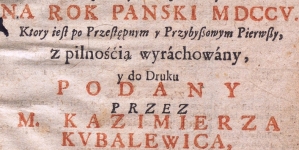 NA ROK PANSKI MDCCV.
Ktory ieſt po Przeſtępnym y Przybyſzowym Pierwſzy,
z pilnośćią wyráchowány,
y do Druku
PODANY
PRZEZ
M. KAZIMIERZA
KVBALEWICA,